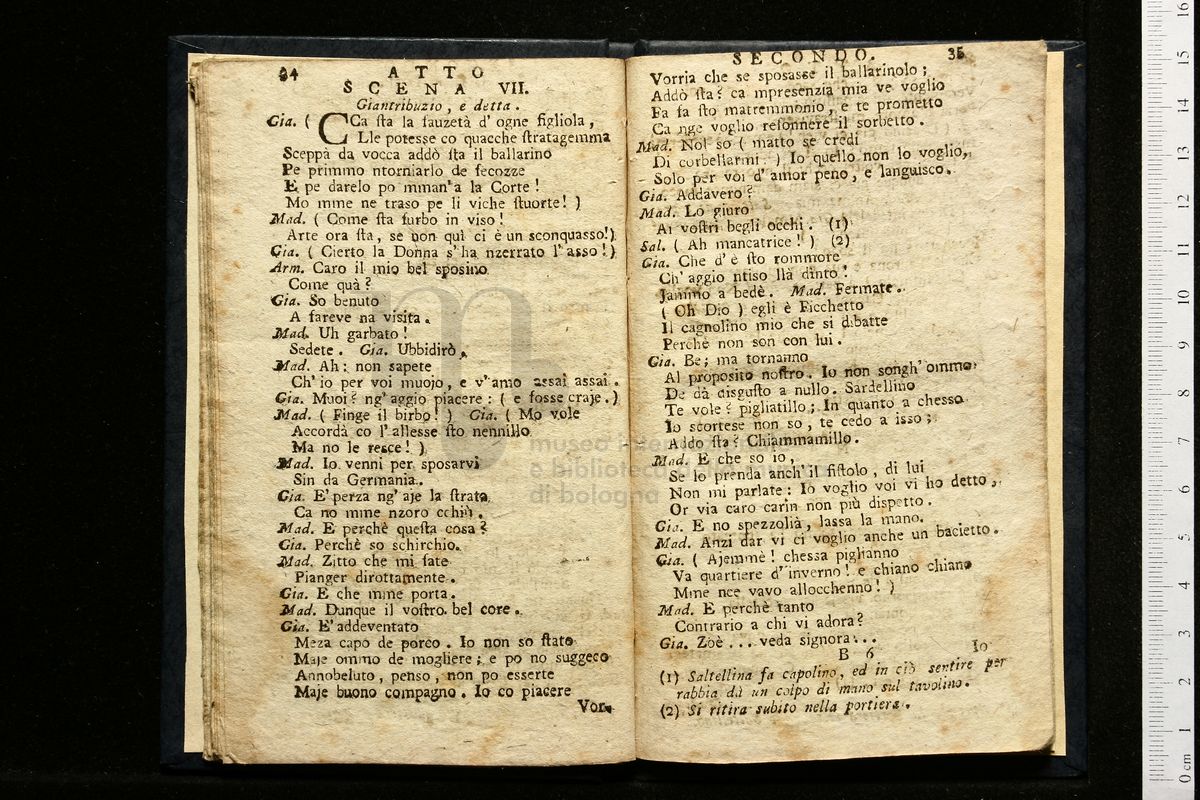 34 ATTO
SCENA VII.
Giantribuzio, e detta.
Gia. ( CCa ſta la ſauzetà d' ogne figliola,
Lle poteſſe co quacche ſtratagemma
Sceppà da vocca addò ſta il ballarino
Pe primmo ntorniarlo de fecozze
E pe darelo po mman'a la Corte!
Mo mme ne traso pe li viche ſtuorte! )
Mad. ( Come ſta furbo in viso!
Arte ora ſta, se non quì ci è un sconquasso!)
Gia. ( Cierto la Donna s' ha nzerrato l' asso!)
Arm. Caro il mio bel sposino
Come quà?
Gia. So benuto
A fareve na visita.
Mad. Uh garbato!
Sedete. Gia. Ubbidirò.
Mad. Ah: non sapete
Ch' io per voi muojo, e v'amo assai assai.
Gia. Muoi? ng' aggio piacere: ( e fosse craje.)
Mad. ( Finge il birbo! ) Gia. ( Mo vole
Accordà co l' allesse ſto nennillo
Ma no le resce! )
Mad. Io venni per sposarvi
Sin da Germania.
Gia. E' perza ng' aje la ſtrata
Ca no mme nzoro cchiù.
Mad. E perchè queſta cosa?
Gia. Perchè so schirchio.
Mad. Zitto che mi fate
Pianger dirottamente.
Gia. E che mme porta.
Mad. Dunque il voſtro bel core.
Gia. E' addeventato
Meza capo de porco. Io non so ſtato
Maje ommo de mogliere; e po no suggeco
Annobeluto, penso, non po esserte
Maje buono compagno. Io co piacere
Vor-
SECONDO. 35
Vorria che se sposasse il ballarinolo;
Addò ſta? ca mpresenzia mia ve voglio
Fa fa ſto matremmonio, e te prometto
Ca nge voglio refonnere il sorbetto.
Mad. Nol so ( matto se credi
Di corbellarmi. ) Io quello non lo voglio,
Solo per voi d' amor peno, e languisco.
Gia. Addavero?
Mad. Lo giuro
Ai voſtri begli occhi. (1)
Sal. ( Ah mancatrice! ) (2)
Gia. Che d' è ſto rommore
Ch' aggio ntiso llà dinto!
Jammo a bedè. Mad. Fermate.
( Oh Dio ) egli è Ficchetto
Il cagnolino mio che si dibatte
Perchè non son con lui.
Gia. Be; ma tornanno
Al proposito noſtro. Io non songh' ommo
De dà disguſto a nullo. Sardellino
Te vole? pigliatillo; In quanto a chesso
Io scortese non so, te cedo a isso;
Addo ſta? Chiammamillo.
Mad. E che so io,
Se lo prenda anch'il fiſtolo, di lui
Non mi parlate: Io voglio voi vi ho detto,
Or via caro carin non più dispetto.
Gia. E no spezzolià, lassa la mano.
Mad. Anzi dar vi ci voglio anche un bacietto.
Gia. ( Ajemmè! chessa piglianno
Va quartiere d'inverno! e chiano chiano
Mme nce vavo allocchenno! )
Mad. E perchè tanto
Contrario a chi vi adora?
Gia. Zoè ... veda signora...
B 6 Io
(1) Saltellina fa capolino, ed in ciò sentire per
rabbia dà un colpo di mano sul tavolino.
(2) Si ritira subito nella portiera.